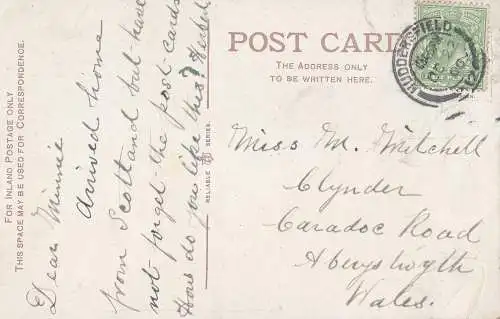 FOR INLAND POSTAGE ONLY
THIS SPACE MAY BE USED FOR CORRESPONDENCE.
Dear Minnie
arrived home
from Scotland but have
not forgot the post cards
How do you like this? Herbert
RELIABLE SERIES.
POST CARD
THE ADDRESS ONLY
TO BE WRITTEN HERE.
HUDDERSFIELD
Miss M. Mitchell
Clynder
Caradoc Road
Aberystwyth
Wales.